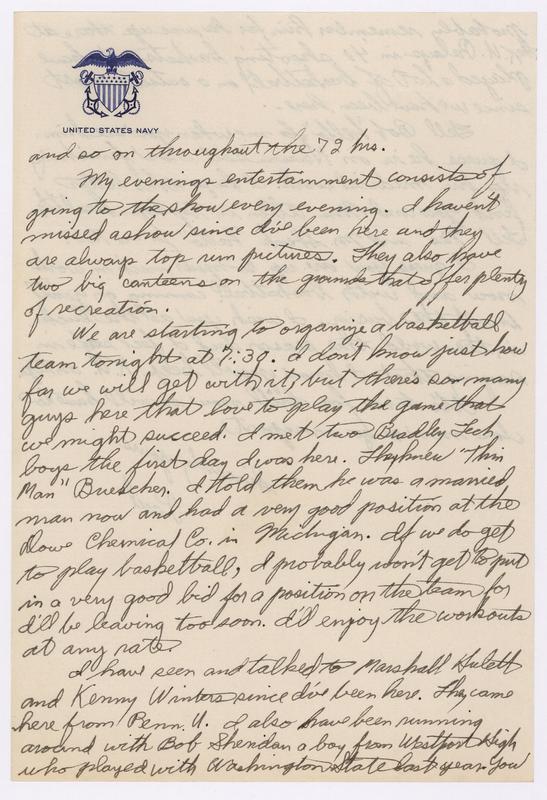 UNITED STATES NAVY
and so on throughout the 72 hrs.
My evenings entertainment consists of
going to the show every evening. I haven't
missed a show since I've been here and they
are always top run pictures. They also have
two big canteens on the grounds that offer plenty
of recreation.
We are starting to organize a basketball
team tonight at 7:30. I don't know just how
far we will get with it, but there's so many
guys here that love to play the game that
we might succeed. I met two Bradley Tech
boys the first day I was here. They knew "Thin
Man" Buescher. I told them he was a married
man now and had a very good position at the
Dowe Chemical Co. in Michigan. If we do get
to play basketball, I probably won't get to put
in a very good bid for a position on the team for
I'll be leaving too soon. I'd enjoy the workouts
at any rate.
I have seen and talked to Marshall Hulett
and Kenny Winters since I've been here. They came
here from Penn. U. I also have been running
around with Bob Sheridan a boy from Westport High
who played with Washington State last year. You